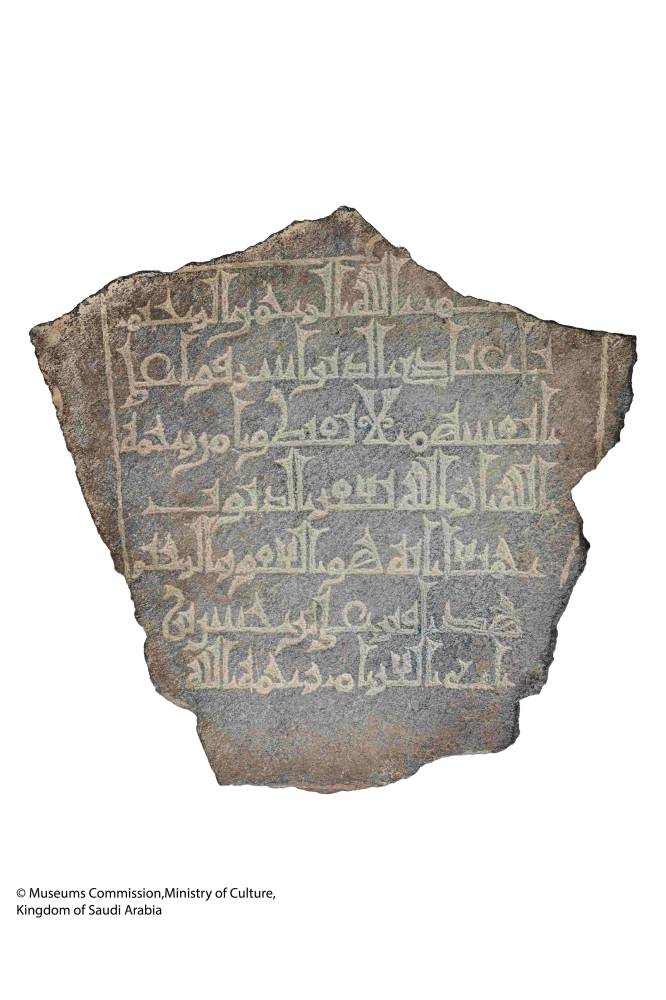 بسم الله الرحمن الرحيم
يا عبادي الذين اسرفوا على
انفسهم لا تقنطوا من رحمة
الله ان الله يغفر الذنوب
جميعا انه هو الغفور الرحيم
بن
من رحمة الله
© Museums Commission,Ministry of Culture,
Kingdom of Saudi Arabia